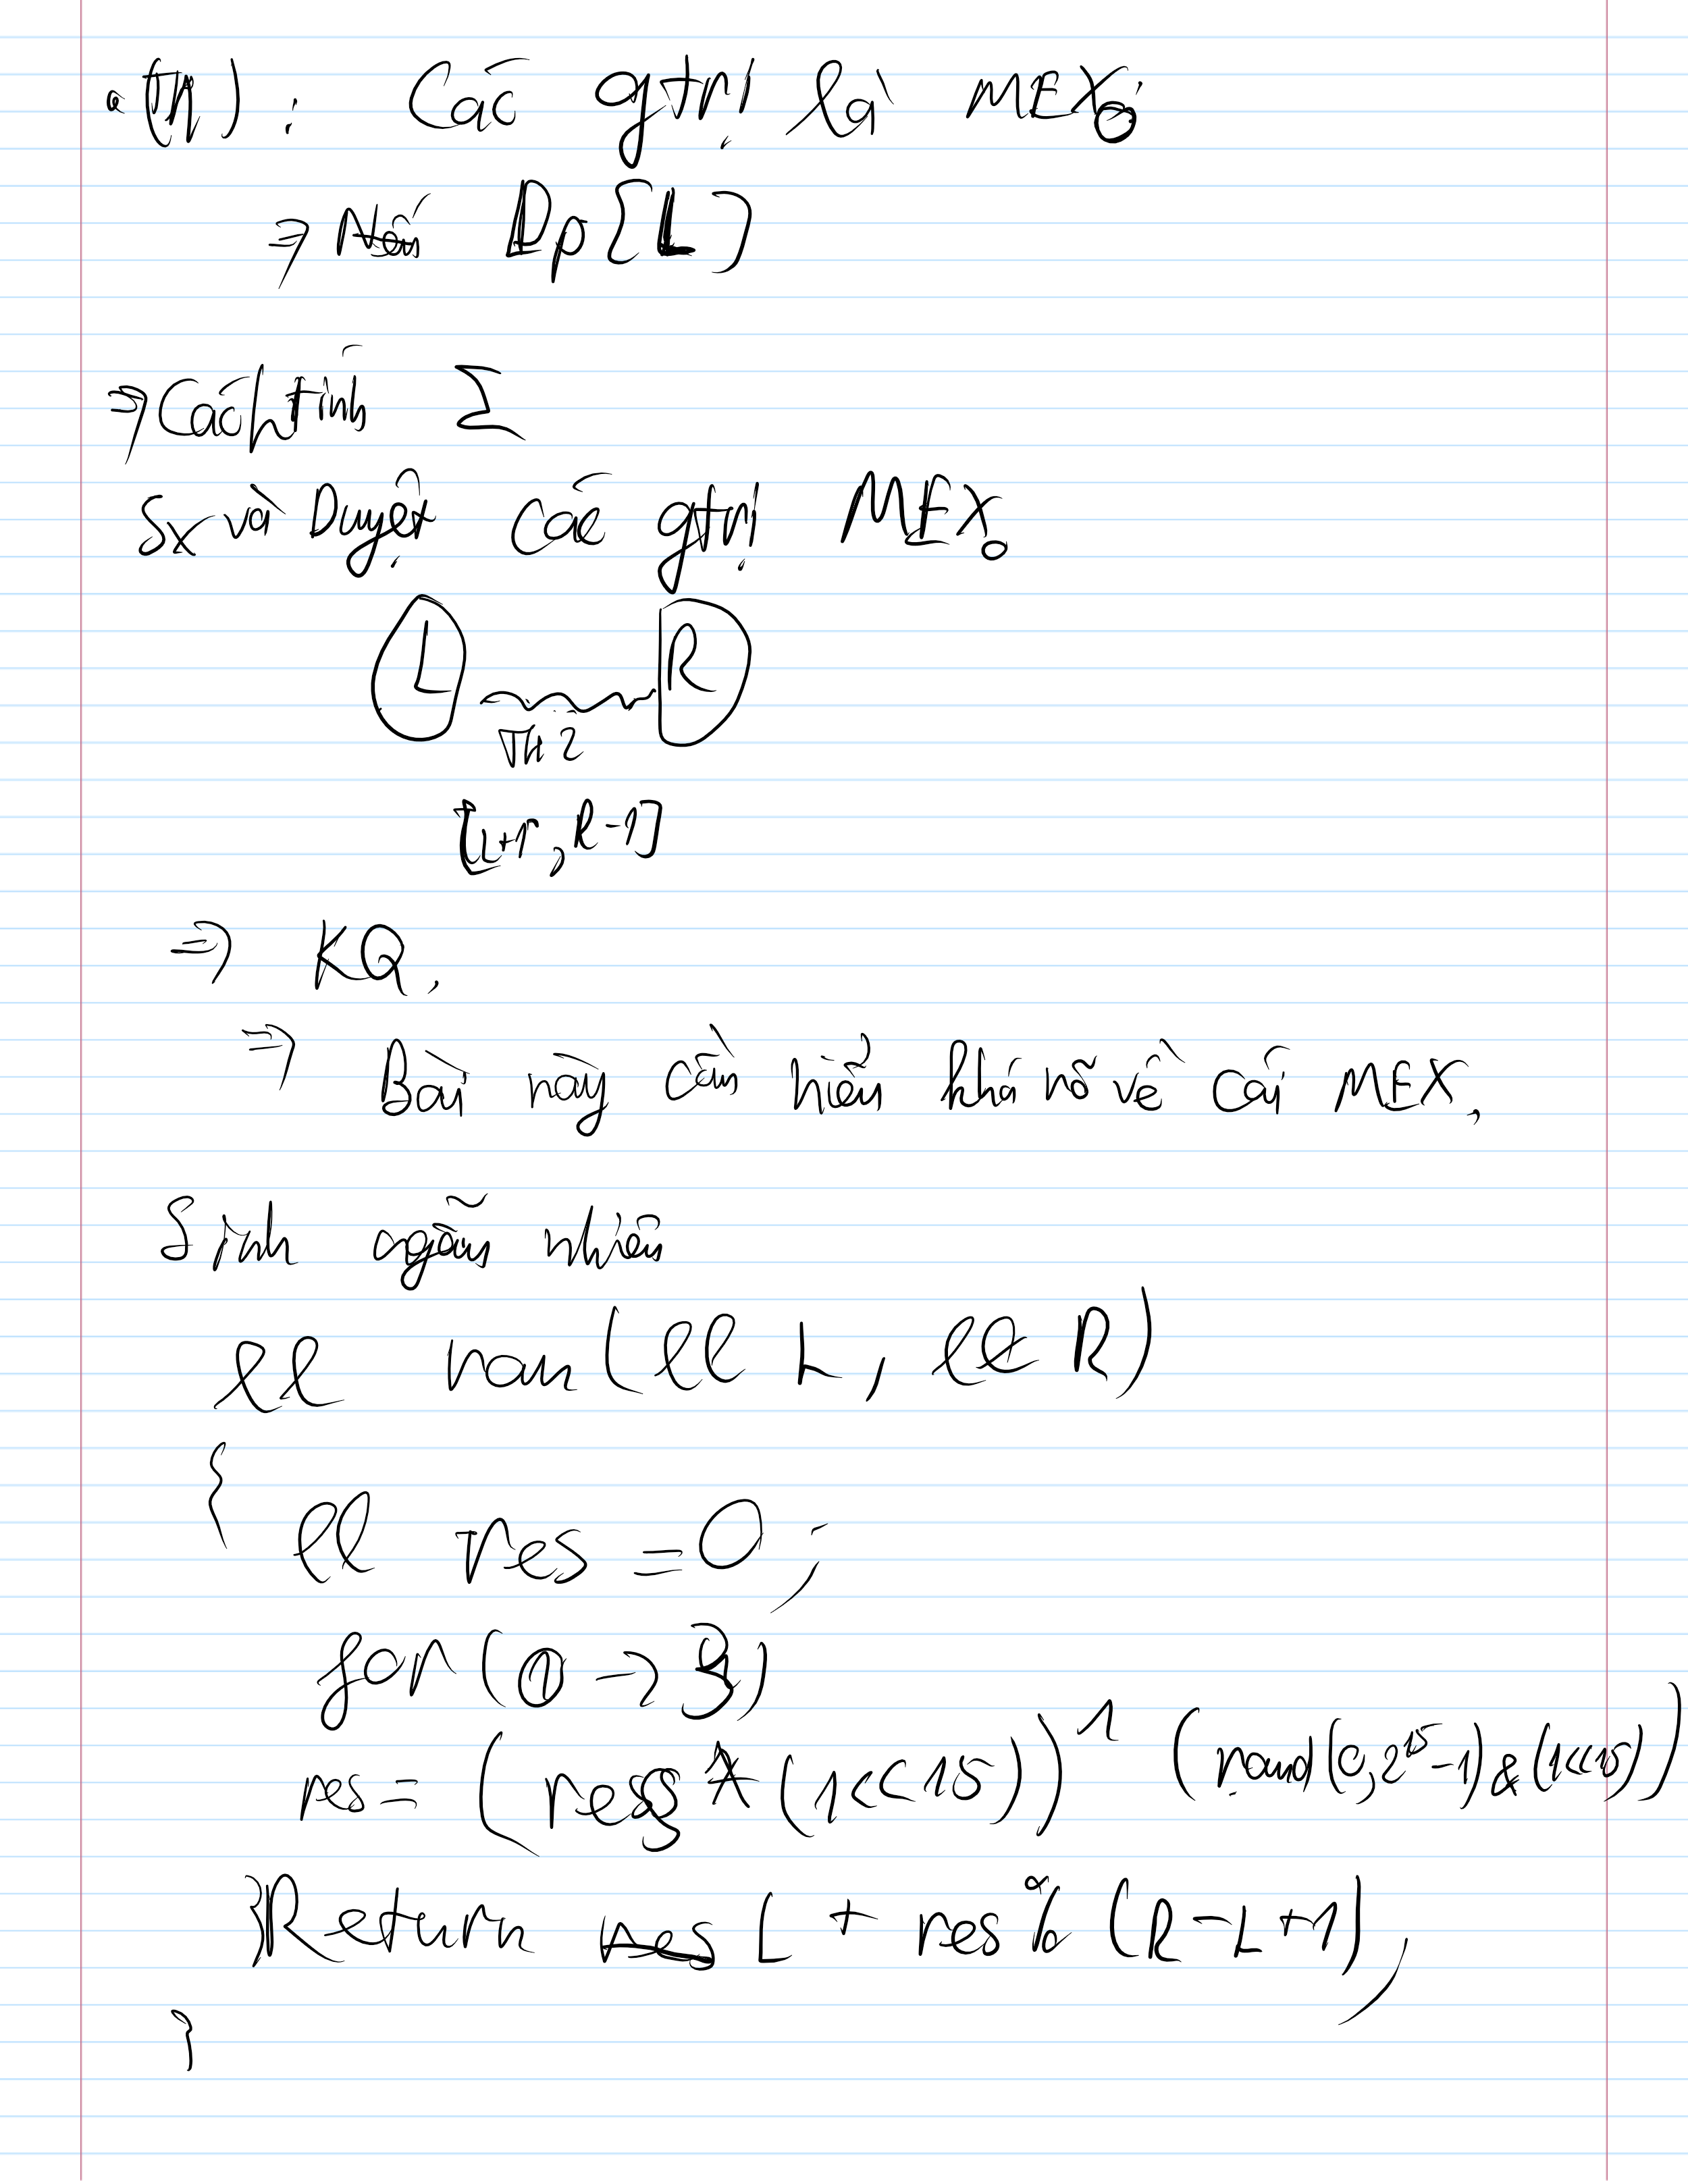 (TH) : Các gtrị là MEX.
⇒ Dp[L]
⇒ Cách tính Σ
Sx và Duyệt các gtrị MEX.
L R
TH2
[L+1, R-1]
⇒ KQ.
⇒ Bài này cần hiểu khá rõ về cái MEX.
Sinh ngẫu nhiên
ll ran(ll L, ll R)
{
ll res = 0;
for(1 → 3)
res = (res * (1<<15)) ^ (rand(0, 2^15 - 1) & (1<<15))
Return L + res % (R - L + 1);
}